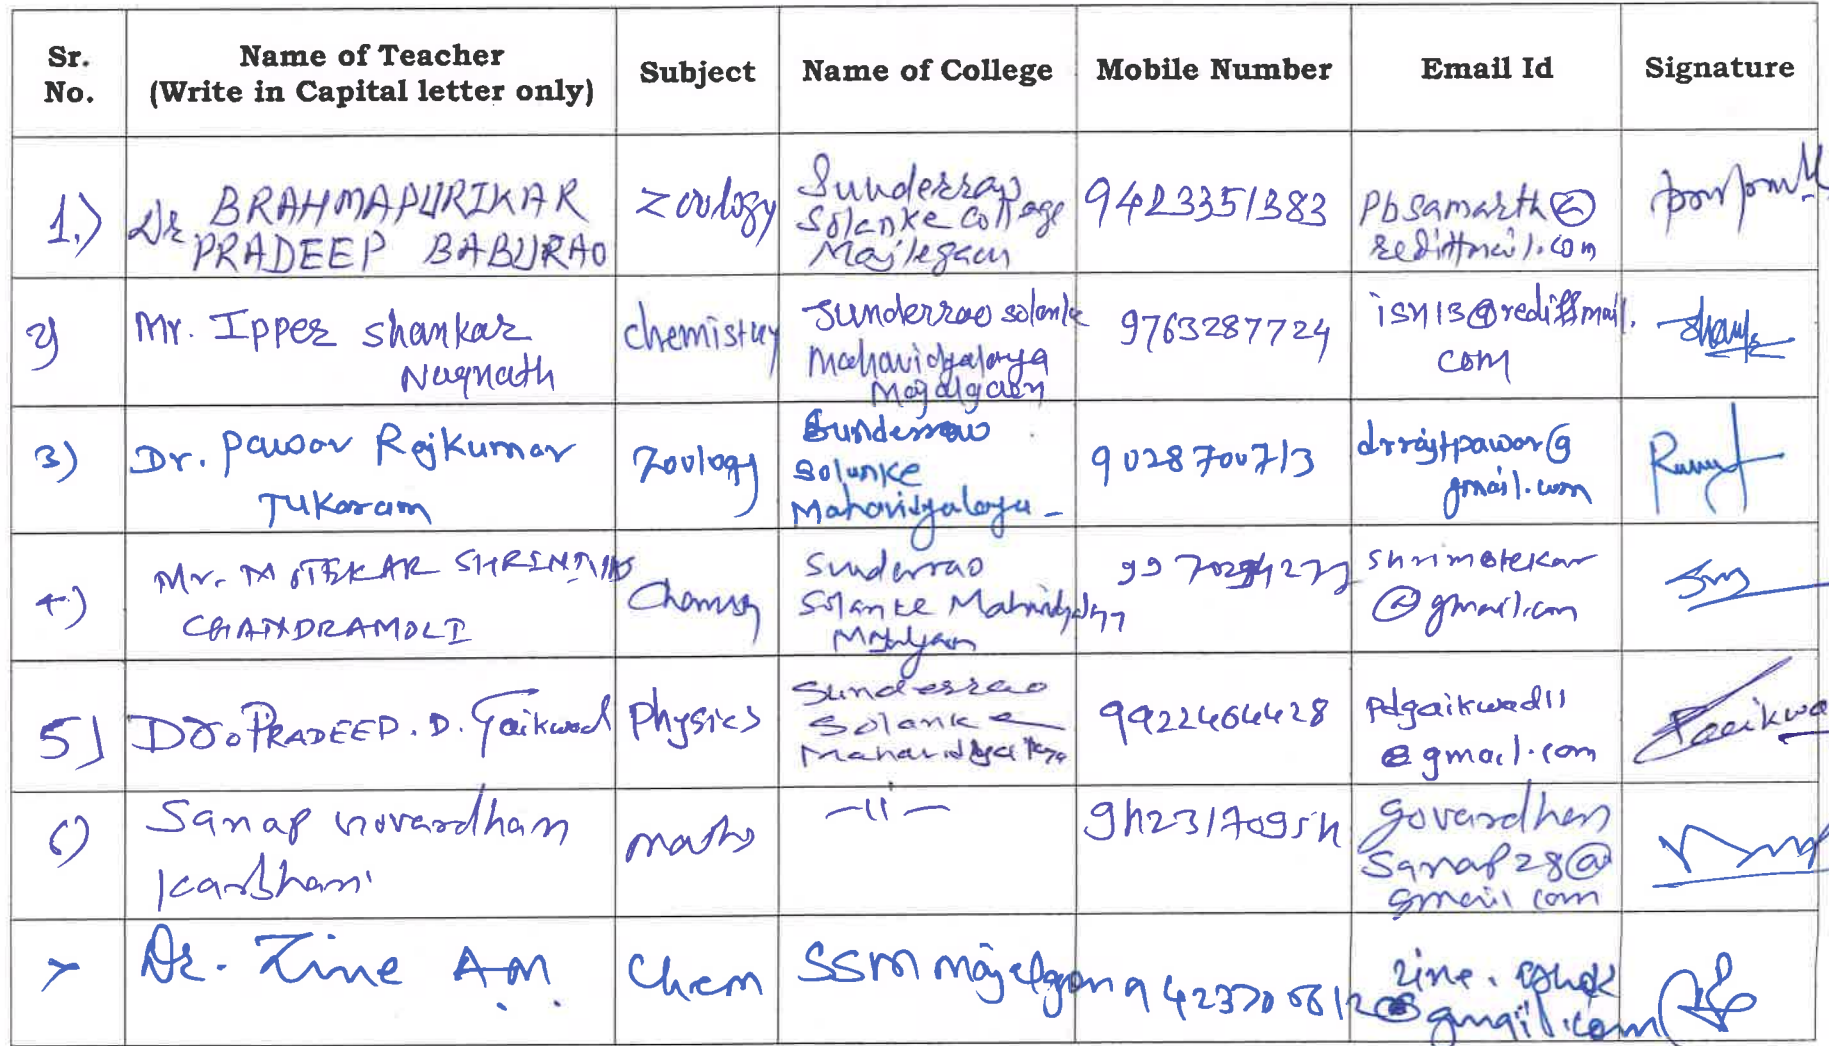 Sr. No. Name of Teacher (Write in Capital letter only) Subject Name of College Mobile Number Email Id Signature
1.) Dr BRAHMAPURIKAR PRADEEP BABURAO Zoology Sunderrao Solanke College Majlegaon 9423351383 Pbsamarth@ rediffmail.com
2) Mr. Ipper Shankar Nagnath chemistry Sunderrao solanke Mahavidyalaya Majalgaon 9763287724 isn13@rediffmail. com
3) Dr. Pawar Rajkumar Tukaram Zoology Sunderrao Solunke Mahavidyalaya - 9028700713 drrajtpawar@ gmail.com
4) Mr. MOTEKAR SHRINIWAS CHANDRAMOLI Sunderrao Solanke shrimotekar @gmail.com
5) Dr. PRADEEP. D. Gaikwad Physics Sunderrao Solanke Mahavidyalaya 9922464428 Pdgaikwad11 @gmail.com
6) Sanap Govardhan Karbhari maths -11- govardhan Sanap28@ gmail com
7 Dr. Zine A.M. Chem SSM majalgaon zine. ashok @gmail.com